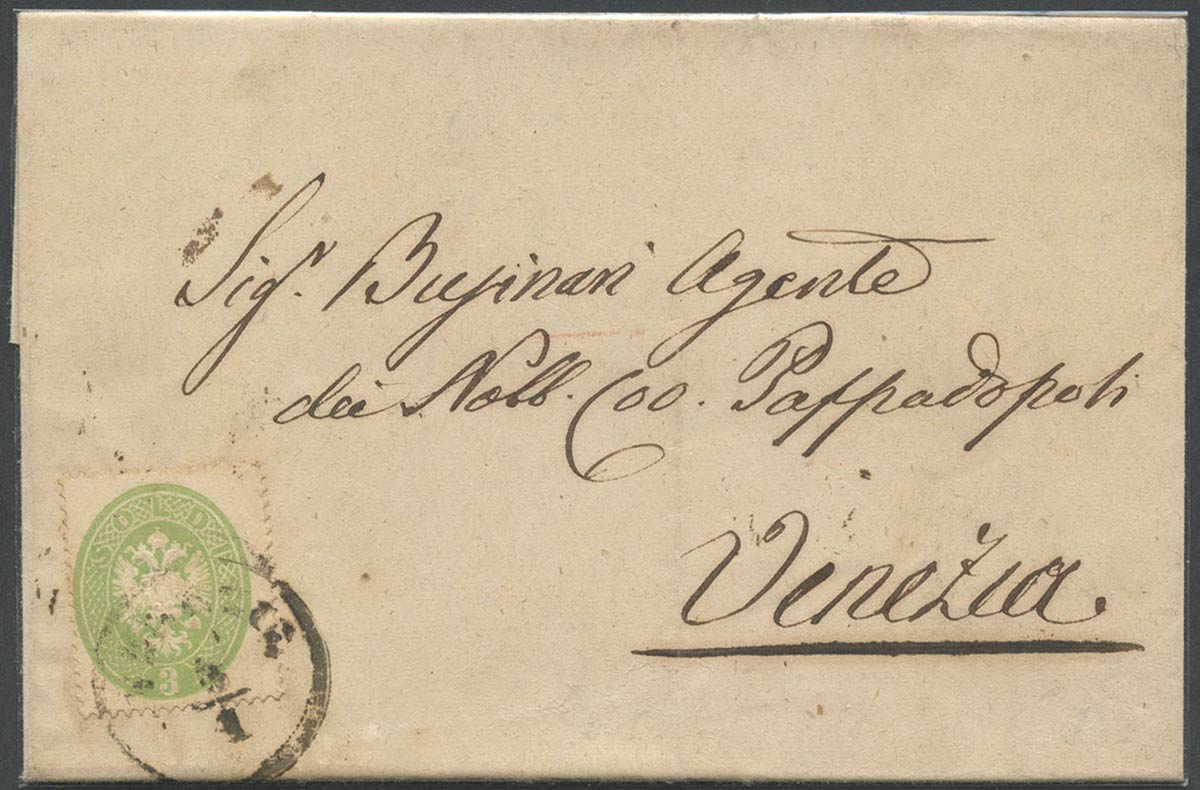 Sigr. Businari Agente
dei Nobb. Coo. Pappadopoli
Venezia.
SOLDI
3